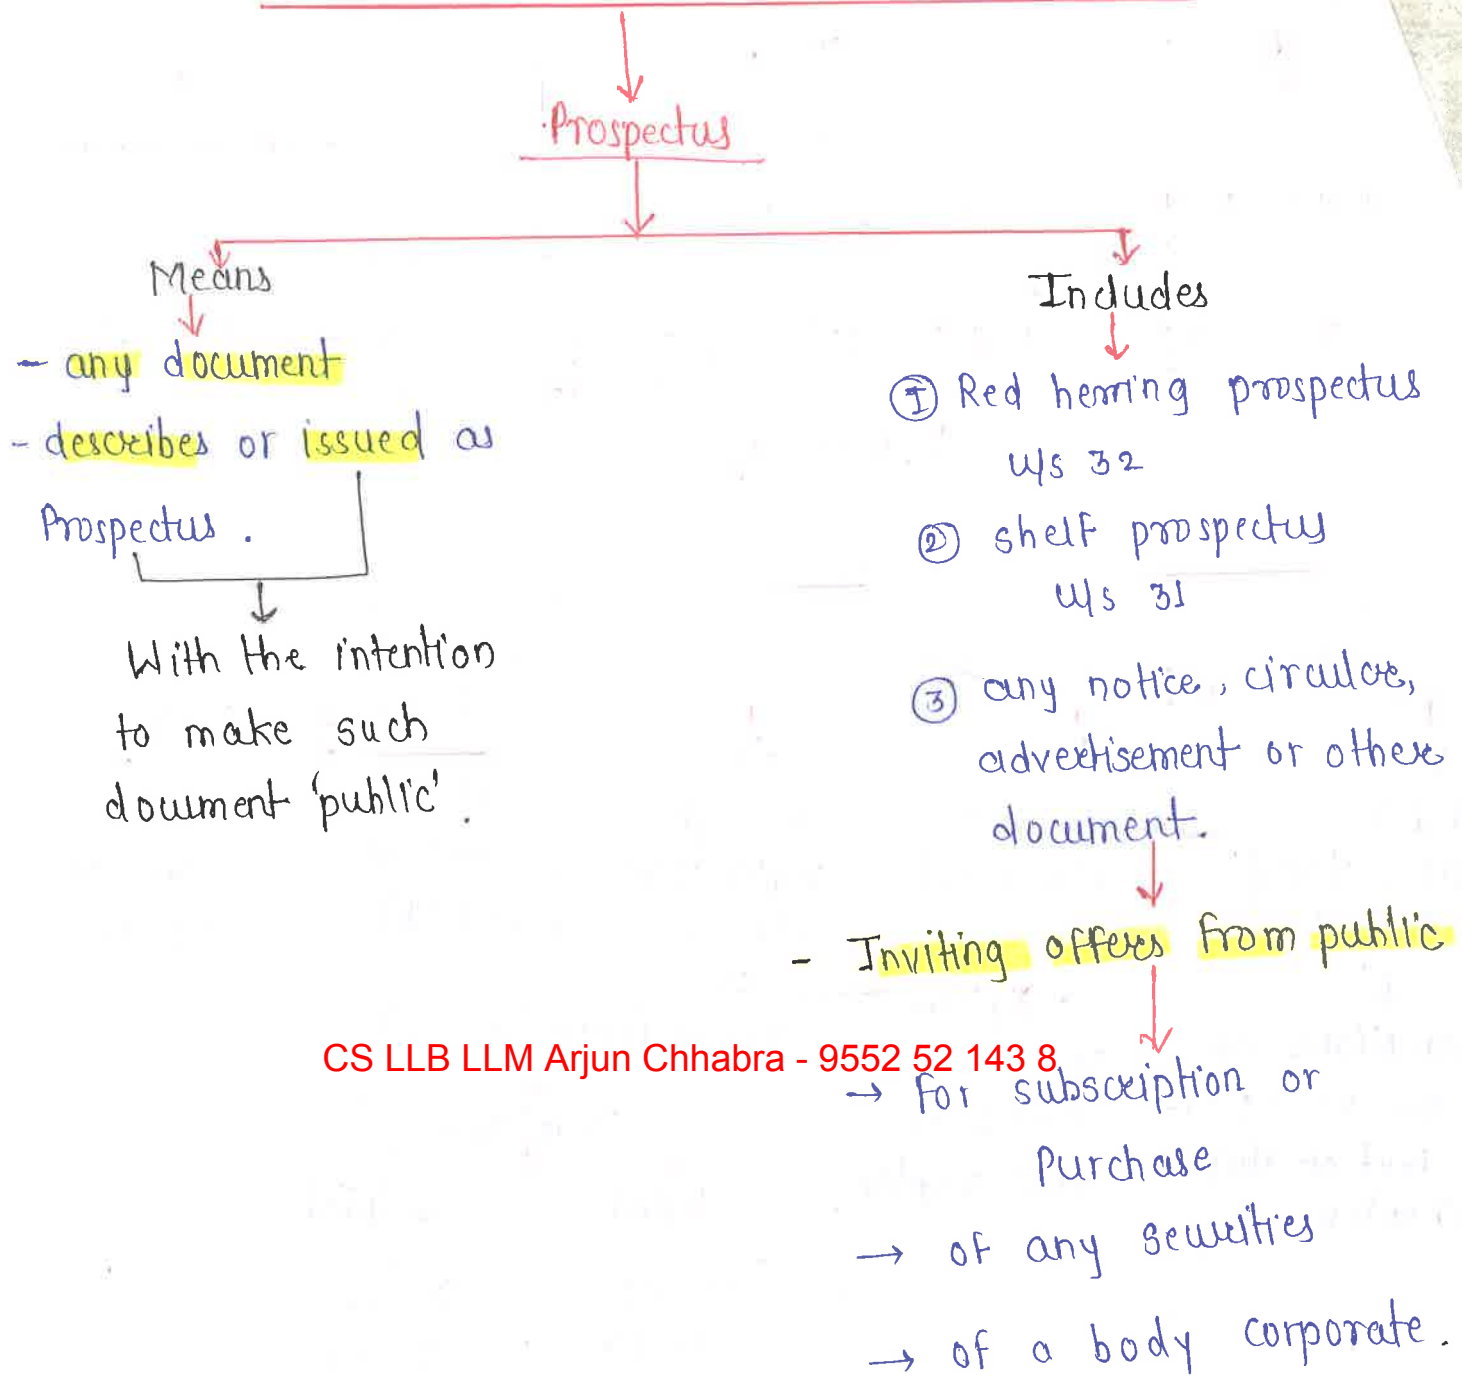 Prospectus
Means
- any document
- describes or issued as
Prospectus.
With the intention
to make such
document 'public'.
Includes
① Red herring prospectus
u/s 32
② shelf prospectus
u/s 31
③ any notice, circular,
advertisement or other
document.
- Inviting offers from public
CS LLB LLM Arjun Chhabra - 9552 52 143 8
→ for subscription or
Purchase
→ of any securities
→ of a body corporate.